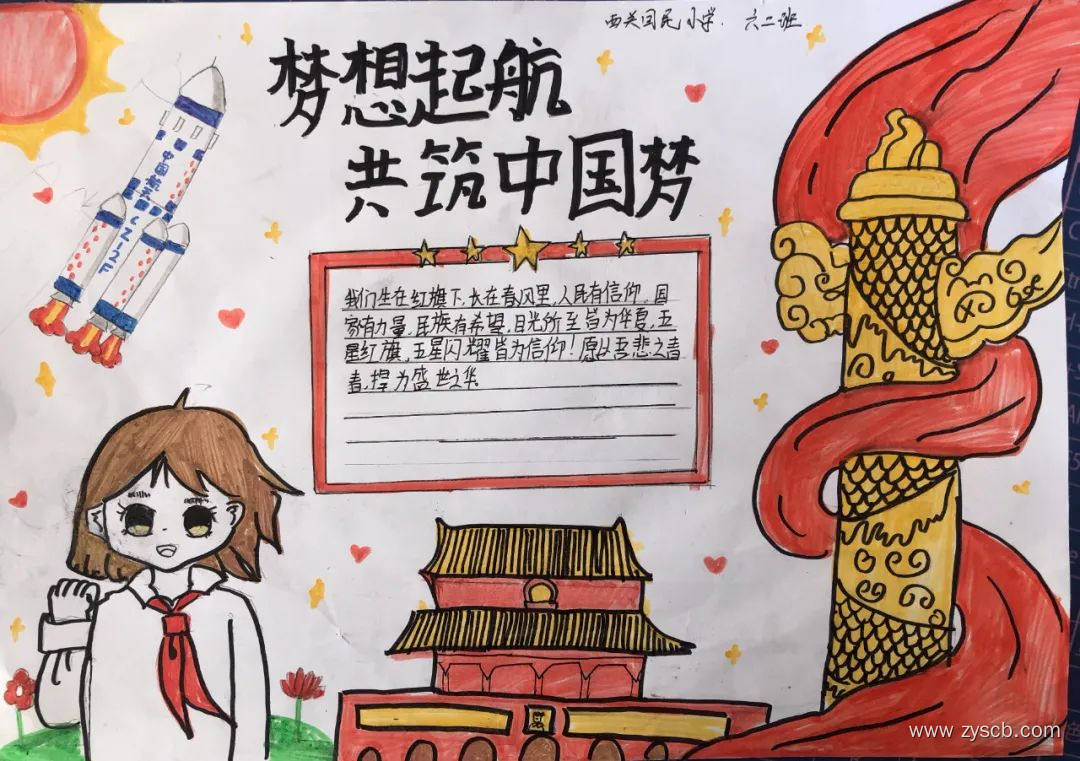 西关回民小学. 六二班
梦想起航
共筑中国梦
中国航天
CZ12F
我们生在红旗下,长在春风里,人民有信仰,国
家有力量,民族有希望,目光所至皆为华夏,五
星红旗,五星闪耀皆为信仰!愿以吾悲之青
春,捍为盛世之华
www.zyscb.com